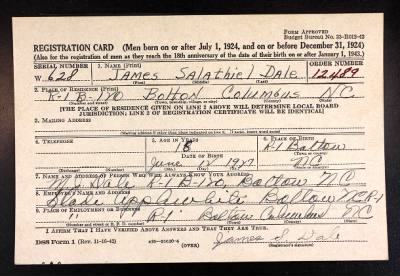 FORM APPROVED
Budget Bureau No. 33-R012-43
REGISTRATION CARD (Men born on or after July 1, 1924, and on or before December 31, 1924)
(Also for the registration of men as they reach the 18th anniversary of the date of their birth on or after January 1, 1943.)
SERIAL NUMBER 1. NAME (Print) ORDER NUMBER
W. 628 JAMES Salathiel Dale 12489
(First) (Middle) (Last)
2. PLACE OF RESIDENCE (Print)
R-1 B-170 Bolton Columbus NC
(Number and street) (Town, township, village, or city) (County) (State)
[THE PLACE OF RESIDENCE GIVEN ON LINE 2 ABOVE WILL DETERMINE LOCAL BOARD
JURISDICTION; LINE 2 OF REGISTRATION CERTIFICATE WILL BE IDENTICAL]
3. MAILING ADDRESS
4. TELEPHONE 5. AGE IN YEARS 6. PLACE OF BIRTH
18 R-1 Bolton
DATE OF BIRTH
June 12 1927 NC
7. NAME AND ADDRESS OF PERSON WHO WILL ALWAYS KNOW YOUR ADDRESS
Dale R-1 B-170 Bolton NC
8. EMPLOYER'S NAME AND ADDRESS
Applewhite Bolton NC R-1
9. PLACE OF EMPLOYMENT OR BUSINESS
" R-1 Bolton Columbus NC
I AFFIRM THAT I HAVE VERIFIED ABOVE ANSWERS AND THAT THEY ARE TRUE.
DSS Form 1 (Rev. 11-16-42) (OVER) James S. Dale